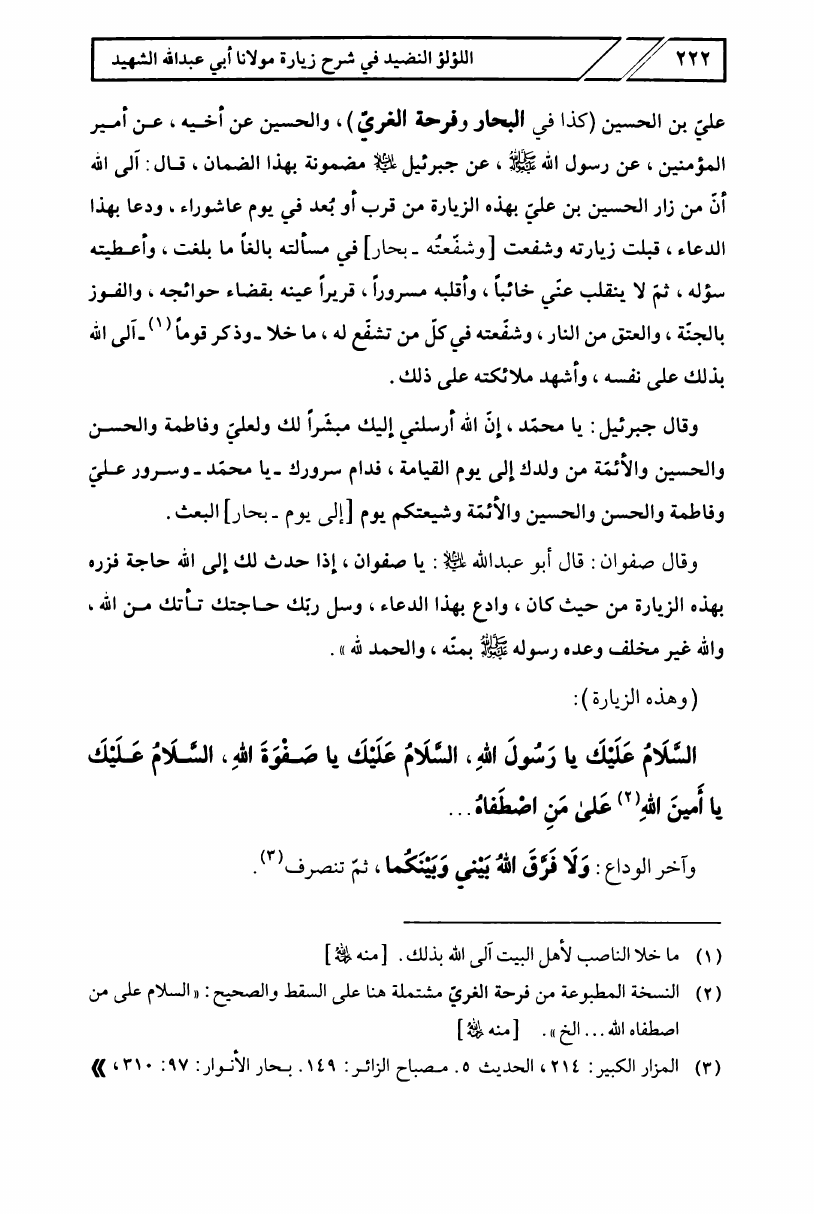 ٢٢٢ اللؤلؤ النضيد في شرح زيارة مولانا أبي عبدالله الشهيد
عليّ بن الحسين (كذا في البحار وفرحة الغريّ)، والحسين عن أخيه، عن أمير
المؤمنين، عن رسول الله ﷺ، عن جبرئيل عليه السلام مضمونة بهذا الضمان، قال: آلى الله
أنّ من زار الحسين بن عليّ بهذه الزيارة من قرب أو بُعد في يوم عاشوراء، ودعا بهذا
الدعاء، قبلت زيارته وشفعت [وشفّعتُه ـ بحار] في مسألته بالغاً ما بلغت، وأعطيته
سؤله، ثمّ لا ينقلب عنّي خائباً، وأقلبه مسروراً، قريراً عينه بقضاء حوائجه، والفوز
بالجنّة، والعتق من النار، وشفّعته في كلّ من تشفّع له، ما خلا ـ وذكر قوماً(١) ـ آلى الله
بذلك على نفسه، وأشهد ملائكته على ذلك.
وقال جبرئيل: يا محمّد، إنّ الله أرسلني إليك مبشّراً لك ولعليّ وفاطمة والحسن
والحسين والأئمّة من ولدك إلى يوم القيامة، فدام سرورك ـ يا محمّد ـ وسرور عليّ
وفاطمة والحسن والحسين والأئمّة وشيعتكم يوم [إلى يوم ـ بحار] البعث.
وقال صفوان: قال أبو عبدالله عليه السلام: يا صفوان، إذا حدث لك إلى الله حاجة فزره
بهذه الزيارة من حيث كان، وادع بهذا الدعاء، وسل ربّك حاجتك تأتك من الله،
والله غير مخلف وعده رسوله ﷺ بمنّه، والحمد لله».
(وهذه الزيارة):
السَّلَامُ عَلَيْكَ يا رَسُولَ اللهِ، السَّلَامُ عَلَيْكَ يا صَفْوَةَ اللهِ، السَّلَامُ عَلَيْكَ
يا أَمينَ اللهِ(٢) عَلىٰ مَنِ اصْطَفاهُ...
وآخر الوداع: وَلَا فَرَّقَ اللهُ بَيْني وَبَيْنَكُما، ثمّ تنصرف(٣).
(١) ما خلا الناصب لأهل البيت آلى الله بذلك. [منه رحمه الله]
(٢) النسخة المطبوعة من فرحة الغريّ مشتملة هنا على السقط والصحيح: «السلام على من
اصطفاه الله... الخ». [منه رحمه الله]
(٣) المزار الكبير: ٢١٤، الحديث ٥. مصباح الزائر: ١٤٩. بحار الأنوار: ٩٧: ٣١٠، »